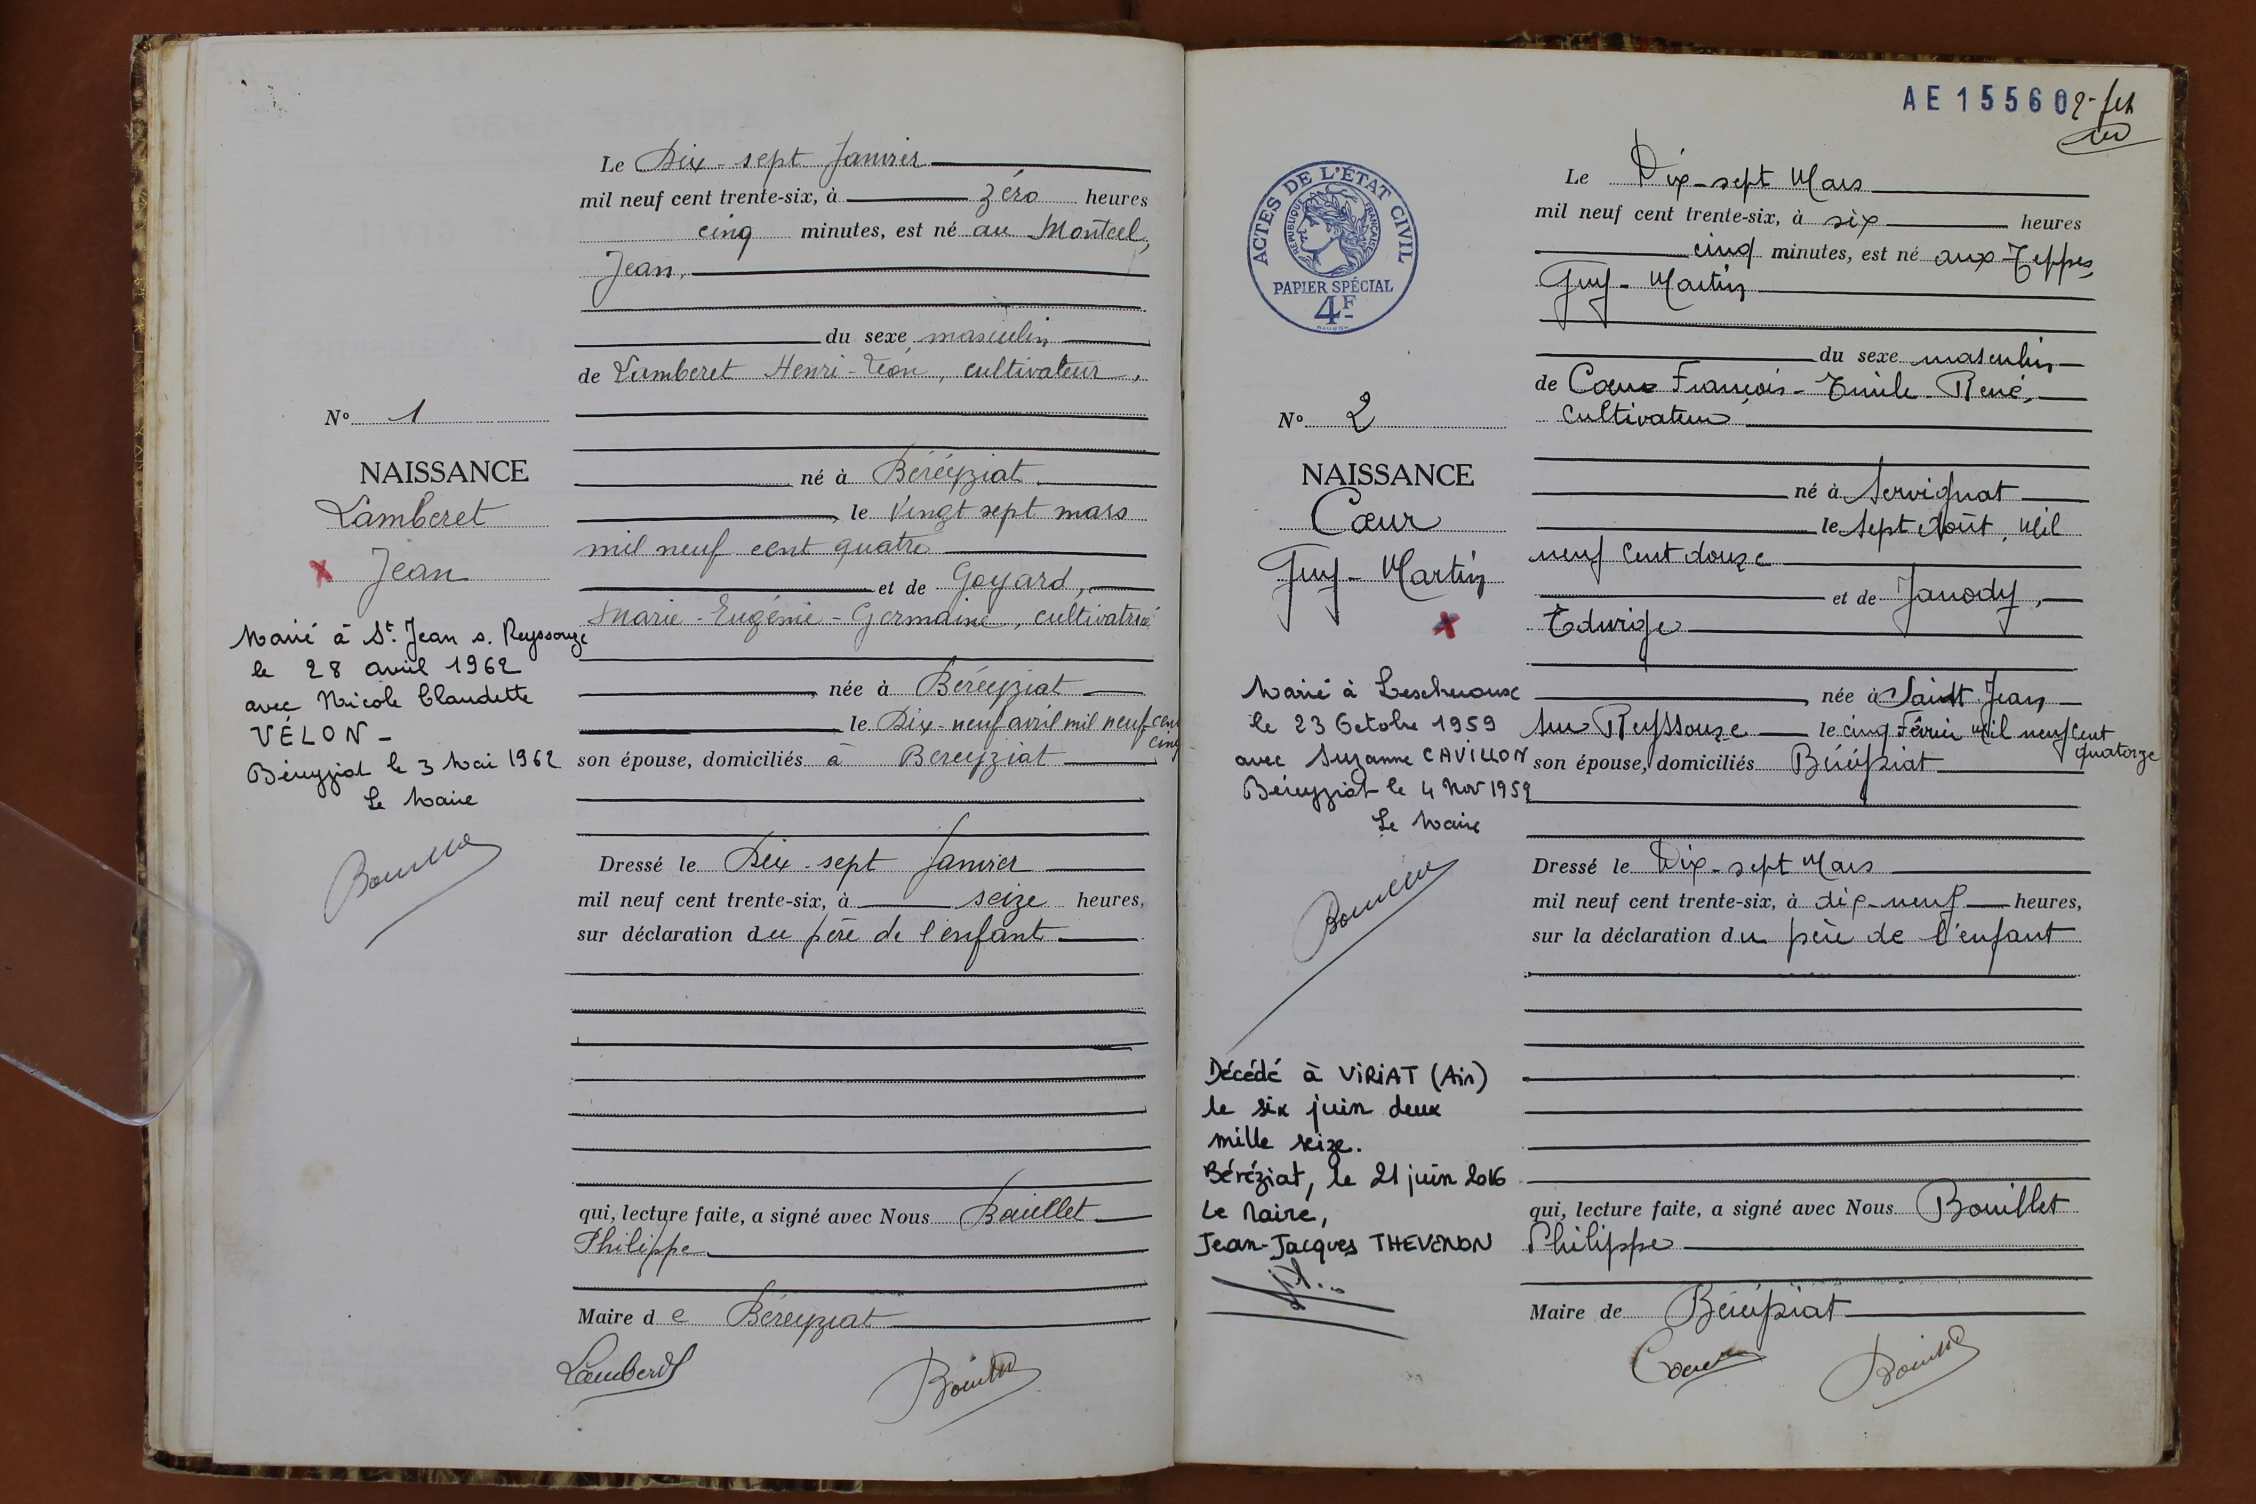 Le Dix-sept Janvier
mil neuf cent trente-six, à zéro heures
cinq minutes, est né au Montcel,
Jean,
du sexe masculin
de Lamberet Henri-Léon, cultivateur,
né à Béréyziat
le Vingt sept mars
mil neuf cent quatre
et de Goyard,
Marie-Eugénie-Germaine, cultivatrice
née à Béréyziat
le Dix-neuf avril mil neuf cent
cinq
son épouse, domiciliés à Béreyziat
Dressé le Dix-sept Janvier
mil neuf cent trente-six, à seize heures,
sur déclaration du père de l'enfant
qui, lecture faite, a signé avec Nous Bouillet
Philippe
Maire de Béréyziat
Lamberet
N° 1
NAISSANCE
Lamberet
Jean
Marié à St. Jean s. Reyssouze
le 28 avril 1962
avec Nicole Claudette
VÉLON -
Béreyziat le 3 Mai 1962
Le Maire
AE 15560
2-
ACTES DE L'ÉTAT CIVIL
RÉPUBLIQUE FRANÇAISE
PAPIER SPÉCIAL
4F
N° 2
NAISSANCE
Cœur
Guy-Martin
Marié à Lescheroux
le 23 Octobre 1959
avec Suzanne CAVILLON
Béreyziat le 4 Nov 1959
Le Maire
Décédé à VIRIAT (Ain)
le six juin deux
mille seize.
Béréziat, le 21 juin 2016
Le Maire,
Jean-Jacques THEVENON
Le Dix-sept Mars
mil neuf cent trente-six, à six heures
cinq minutes, est né aux Teppes,
Guy-Martin
du sexe masculin
de Cœur François-Emile-René,
cultivateur
né à Servignat
le sept Août, mil
neuf cent douze
et de Janody,
Edwige
née à Saint Jean
sur Reyssouze le cinq Février mil neuf cent
quatorze
son épouse, domiciliés Béréyziat
Dressé le Dix-sept Mars
mil neuf cent trente-six, à dix-neuf heures,
sur la déclaration du père de l'enfant
qui, lecture faite, a signé avec Nous Bouillet
Philippe
Maire de Béréyziat
Coeur